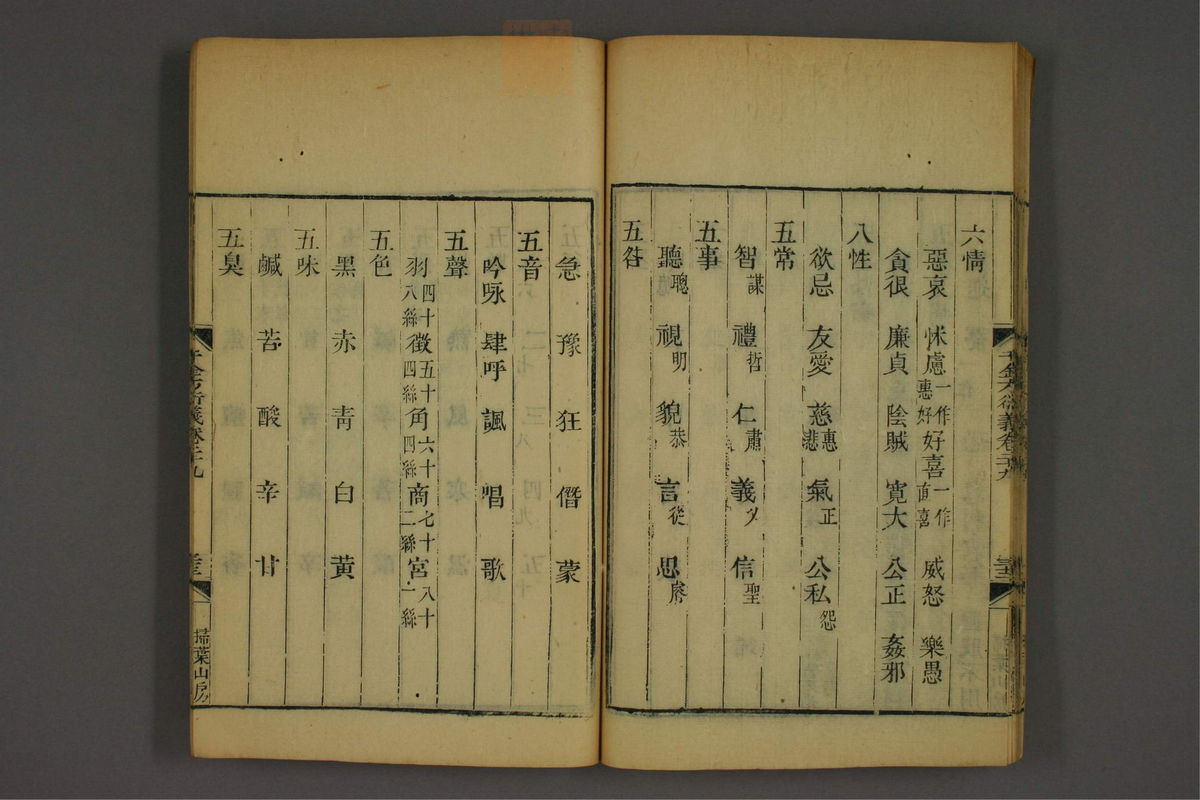 六情
惡哀 怵慮一作惠好 好喜一作直喜 威怒 樂愚
貪很 廉貞 陰賊 寬大 公正 姦邪
八性
欲忌 友愛 慈惠悲 氣正 公私怨
五常
智謀 禮哲 仁肅 義乂 信聖
五事
聽聰 視明 貌恭 言從 思睿
五咎
急 豫 狂 僭 蒙
五音
吟咏 肆呼 諷 唱 歌
五聲
羽四十八絲 徵五十四絲 角六十四絲 商七十二絲 宮八十一絲
五色
黑 赤 靑 白 黃
五味
鹹 苦 酸 辛 甘
五臭
千金方衍義卷二十九
三十三
掃葉山房